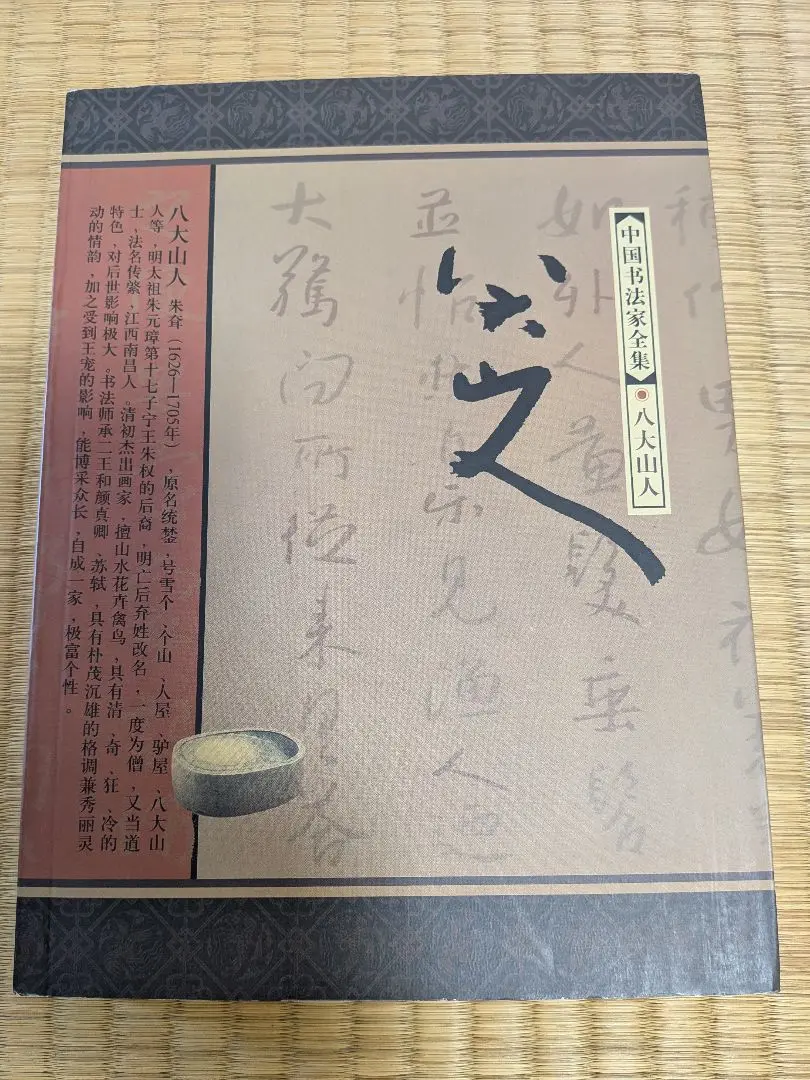 中国书法家全集
八大山人
八大山人
種作男女衣
如外人黃髮垂髫
並怡然自樂見漁人迺
大驚問所從來具答
八大山人 朱耷（1626—1705年），原名统，号雪个、个山、人屋、驴屋、八大山
人等，明太祖朱元璋第十七子宁王朱权的后裔，明亡后弃姓改名，一度为僧，又当道
士，法名传繁，江西南昌人。清初杰出画家，擅山水花卉禽鸟，具有清、奇、狂、冷的
特色，对后世影响极大。书法师承二王和颜真卿、苏轼，具有朴茂沉雄的格调兼秀丽灵
动的情韵，加之受到王宠的影响，能博采众长，自成一家，极富个性。